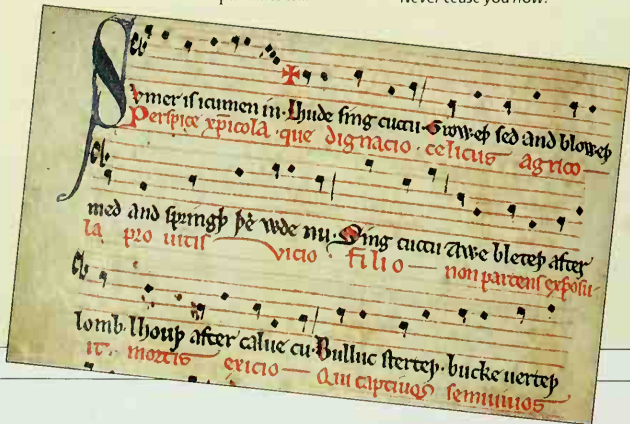 Never cease you now.
Sumer is icumen in· Lhude sing cuccu· Groweþ sed and bloweþ
Perspice xp̄icola· que dignacio· celicus agrico
med and springþ þe wde nu· Sing cuccu Awe bleteþ after
la pro uitis vicio· filio non parcens exposu
lomb· lhouþ after calue cu· Bulluc sterteþ· bucke uerteþ
it· mortis exicio Qui captiuos semiuiuos